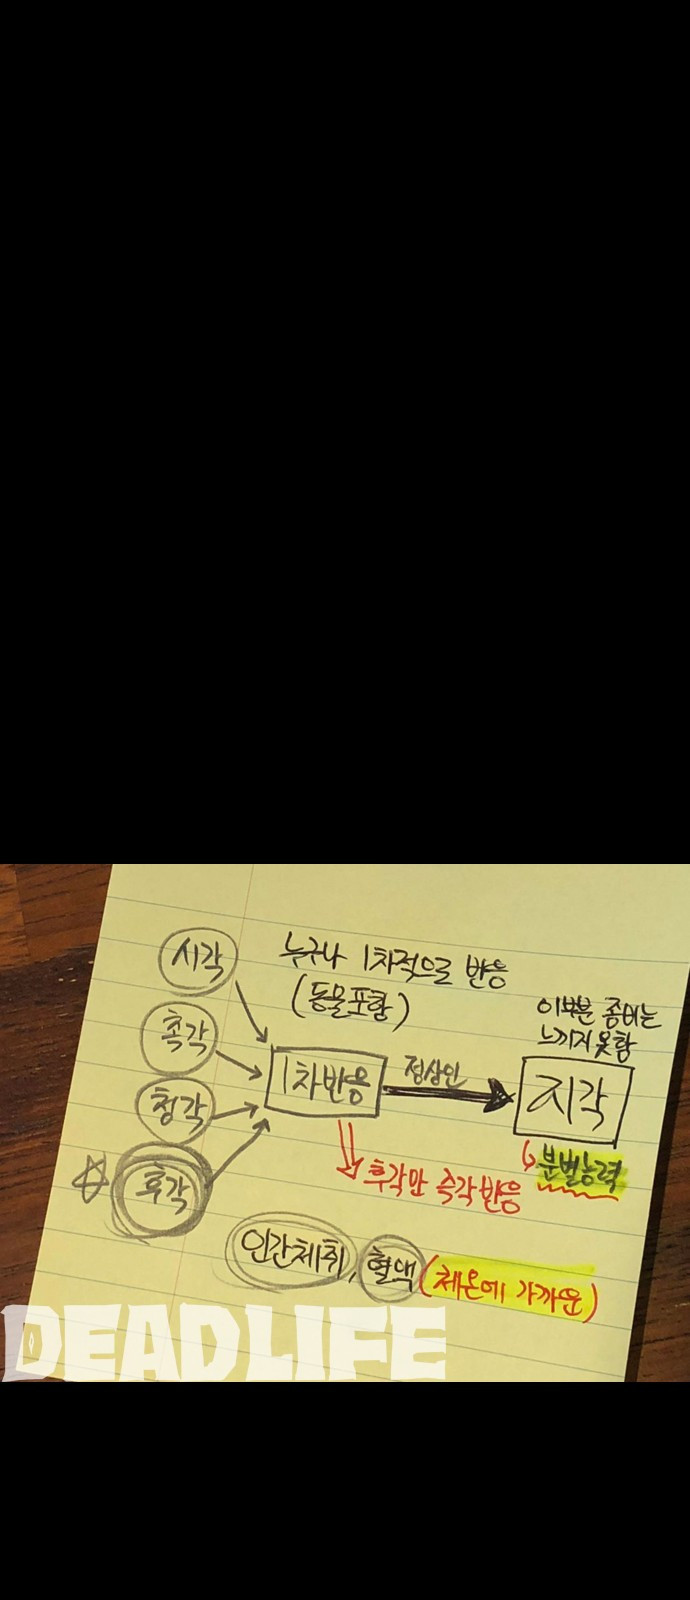 시각
누구나 1차적으로 반응
(동물포함)
촉각
이부분 좀비는
느끼지 못함
1차반응
정상인
지각
청각
분별능력
후각만 즉각반응
후각
인간체취, 혈액 (체온에 가까운)
DEADLIFE